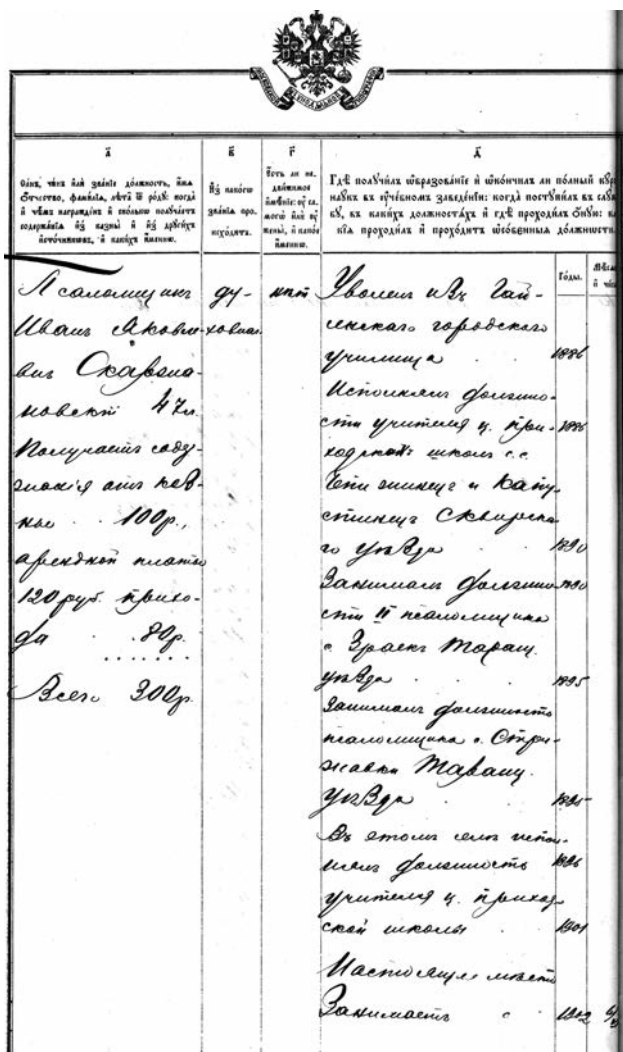 а҃
Санъ, чинъ или званїе должность, имя
Отчество, фамилїя, лѣта ѿ роду: когда
и чѣмъ награжденъ и сколькѡ получаетъ
содержанїя изъ казны и изъ другихъ
источникѡвъ, и какихъ именнѡ.
в҃
Изъ какогѡ
званїя про-
исходитъ.
г҃
Есть ли не-
движимое
имѣнїе: оу са-
могѡ или оу
жены, и какое
именнѡ.
д҃
Гдѣ получилъ ѡбразованїе и ѡкончилъ ли полный кур
наукъ въ оучебномъ заведенїи: когда поступилъ въ слу
бу, въ какихъ должностѧхъ и гдѣ проходилъ ѻную: ка
кїя проходилъ и проходитъ ѡсѡбенныѧ должности
Годы.
Псаломщикъ
Иванъ Яковле-
вичъ
новскій 47л.
Получаетъ содер-
жанія отъ каз-
ны 100р.,
арендной платы
120 руб. прихо-
да 80р.
Всего 300р.
ду-
ховнаго
нѣт
Уволенъ изъ Гай-
синскаго городскаго
училища 1886
Исполнялъ должно-
сти учителя ц. при- 1886
ходскихъ школъ с.с.
и Капу-
стинецъ Сквирска-
го уѣзда 1890
Занималъ должно- 1890
сти II псаломщика
с. Таращ.
уѣзда 1895
Занималъ должность
псаломщика с. Стри-
жавки Таращ.
уѣзда 1895
Въ этомъ селѣ испол-
нялъ должность 1896
учителя ц. приход-
ской школы 1901
Настоящее мѣсто
Занимаетъ с 1902